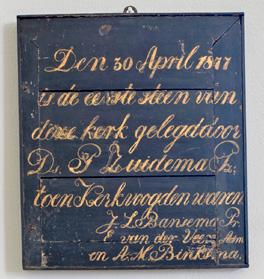 Den 30 April 1877
is de eerste steen van
deze kerk gelegd door
Ds. F. Zuidema Fz.
toen Kerkvoogden waren
J. L. Bansema Pr.
E. van der Veen Adm
en A. M. Binksma